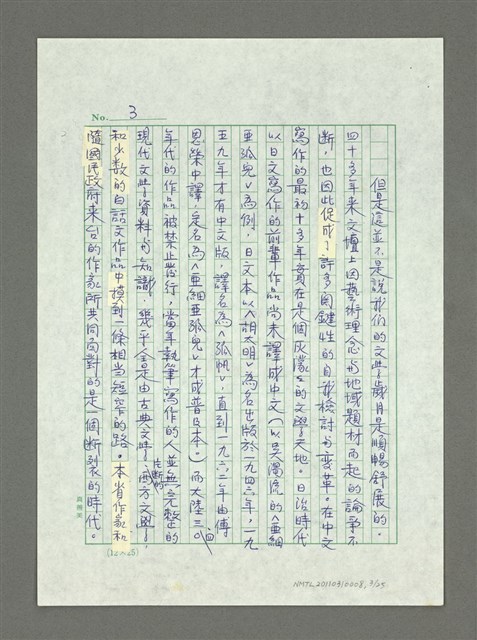 No. 3
但是這並不是說我們的文學歲月是順暢舒展的。
四十多年來文壇上因藝術理念或地域題材而起的論爭不
斷，也因此促成了許多關鍵性的自我檢討與變革。在中文
寫作的最初十多年實在是個灰濛々的文學天地。日治時代
以日文寫作的前輩作品尚未譯成中文（以吳濁流的〈亞細
亞孤兒〉為例，日文本以〈胡太明〉為名出版於一九四六年，一九
五九年才有中文版，譯名為〈孤帆〉，直到一九六二年由傅
恩榮中譯，定名為〈亞細亞孤兒〉才成普及本。）而大陸三〇、四〇
年代的作品被禁止發行，當年執筆寫作的人並無完整的
現代文學資料與知識，幾乎全是由古典文學、片斷的西方文學，
和少數的白話文作品中摸到一條相當短窄的路。本省作家和
隨國民政府來台的作家所共同面對的是一個斷裂的時代。
(12×25)
NMTL20110410008, 3/25